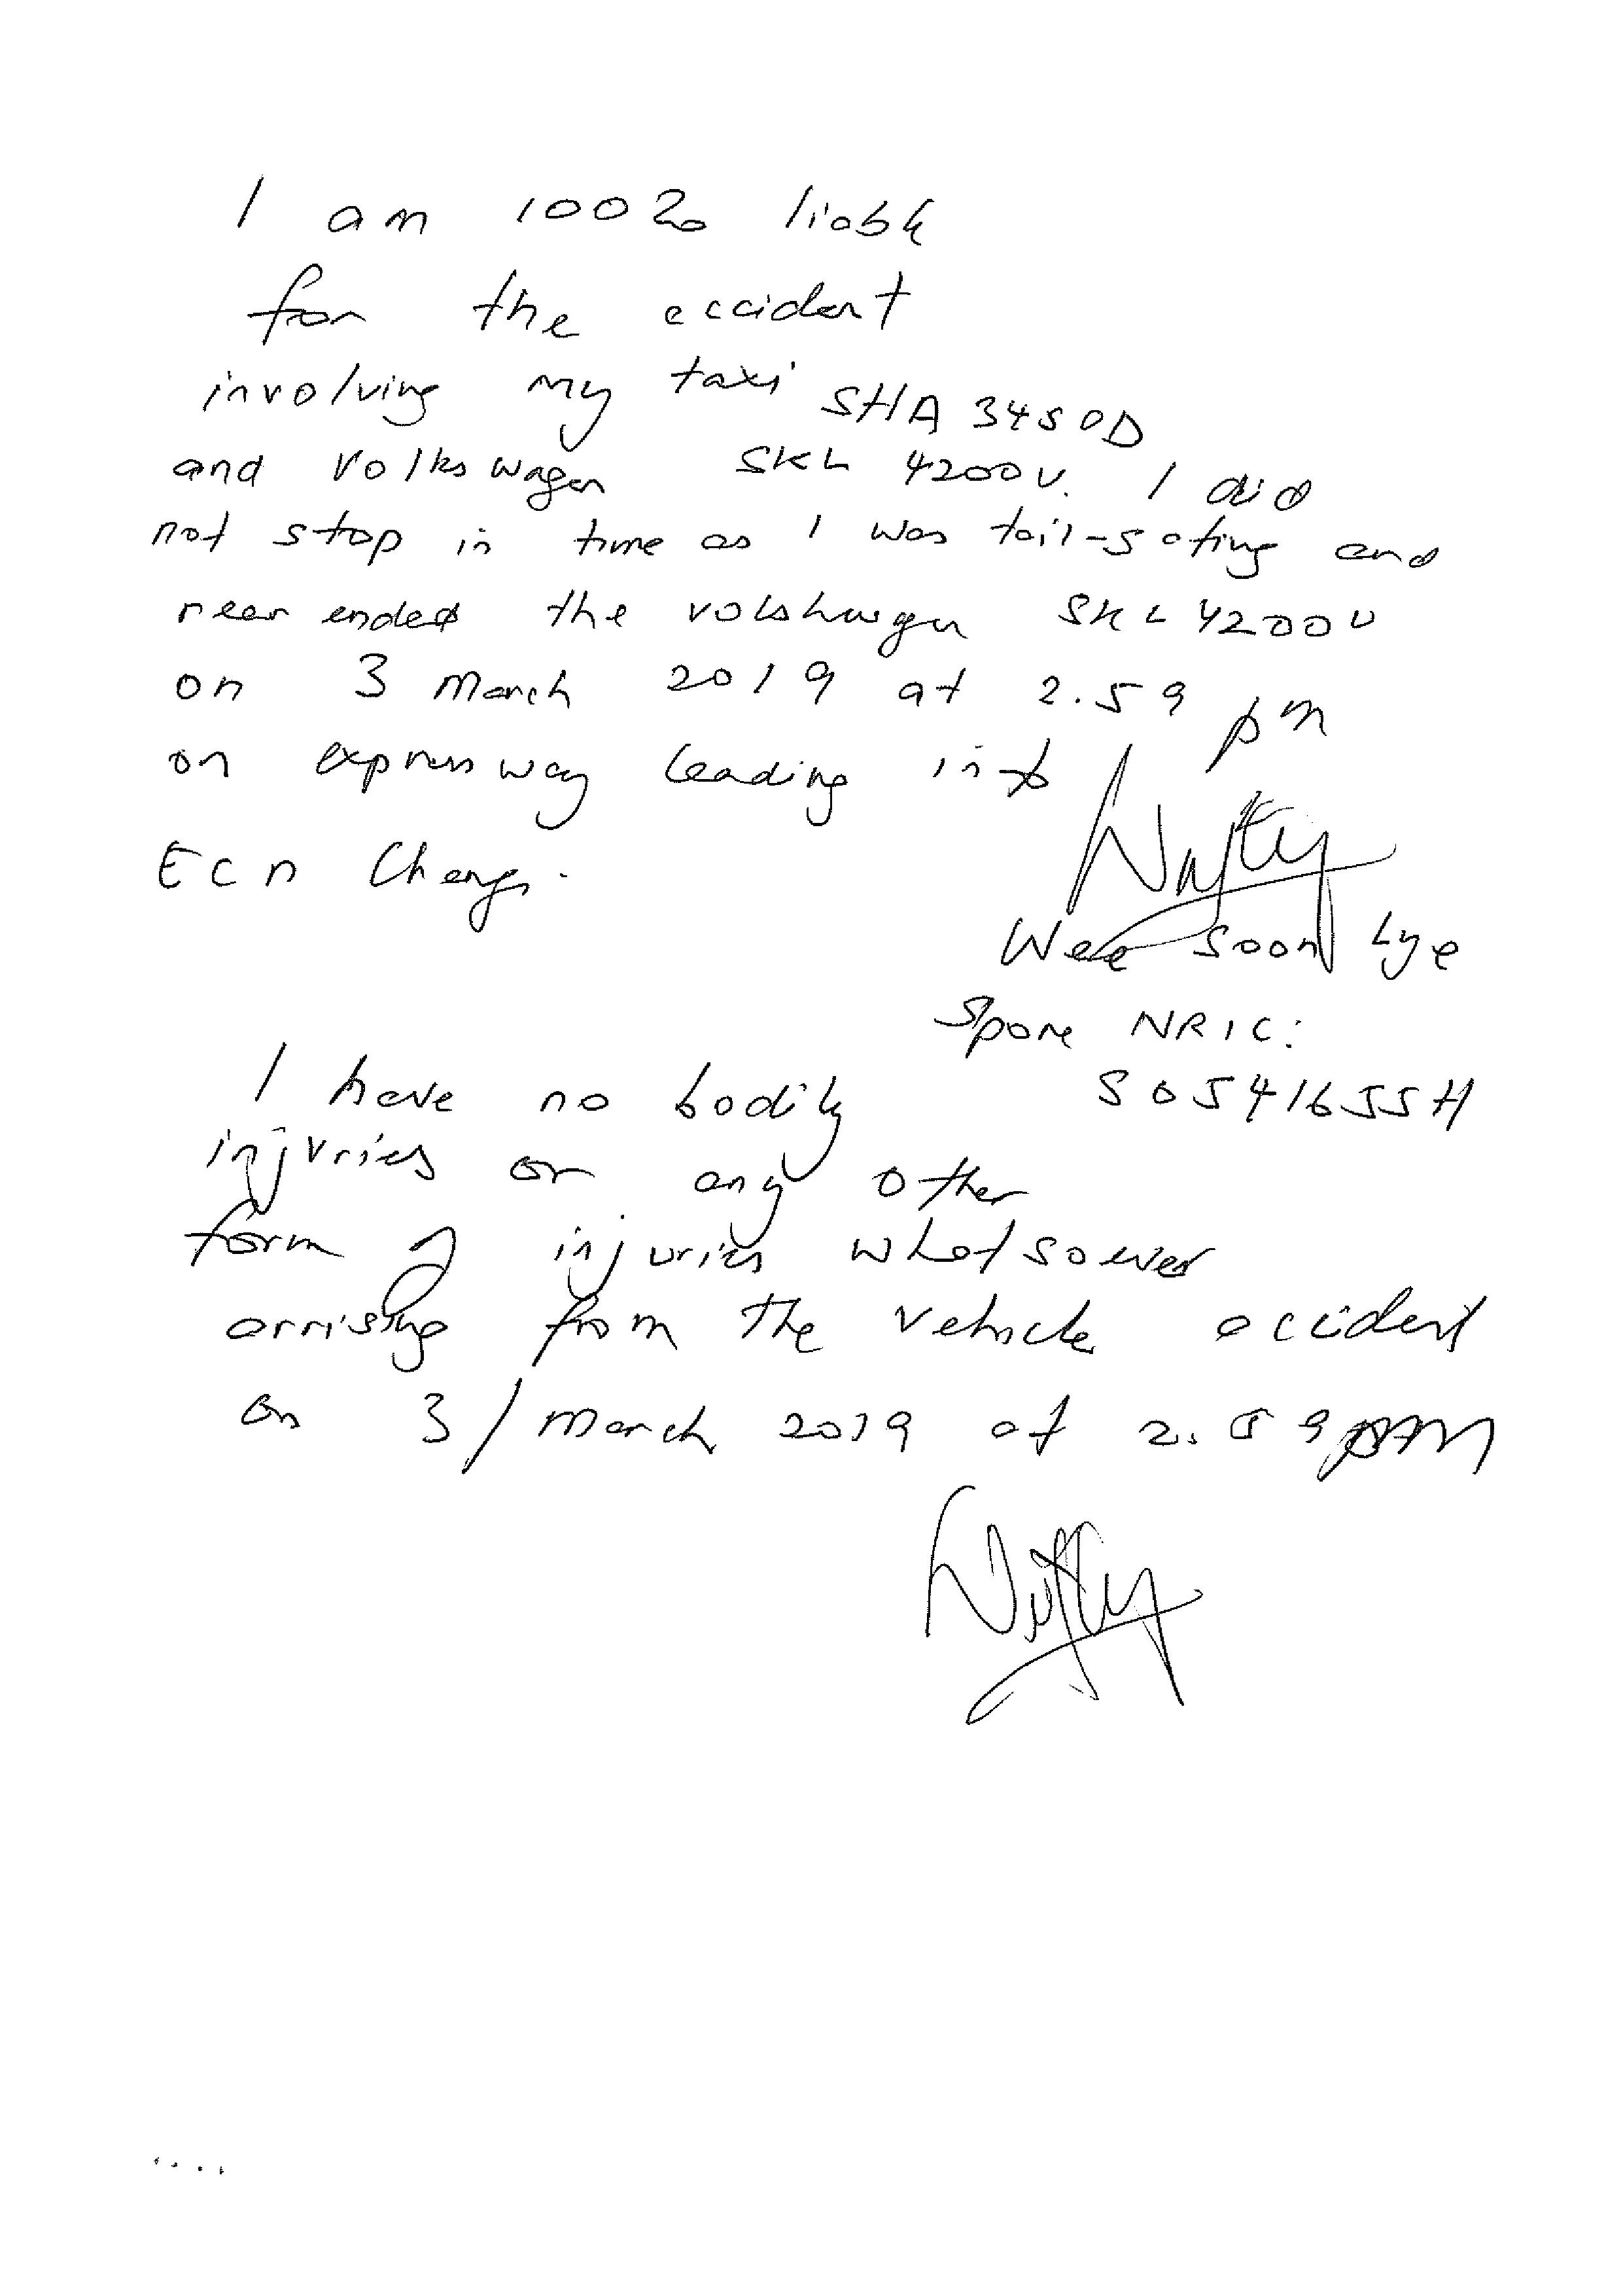 I am 100% liable
for the accident
involving my taxi SHA 3450D
and Volkswagen SKL 4200U. I did
not stop in time as I was tail-gating and
rear ended the volskwagen SKL 4200U
on 3 March 2019 at 2.59 pm
on expressway leading into
ECP Changi.
Wee Soon Lye
Spore NRIC:
S0541655H
I have no bodily
injuries or any other
form of injuries whatsoever
arrising from the vehicle accident
on 3/March 2019 at 2.59pm